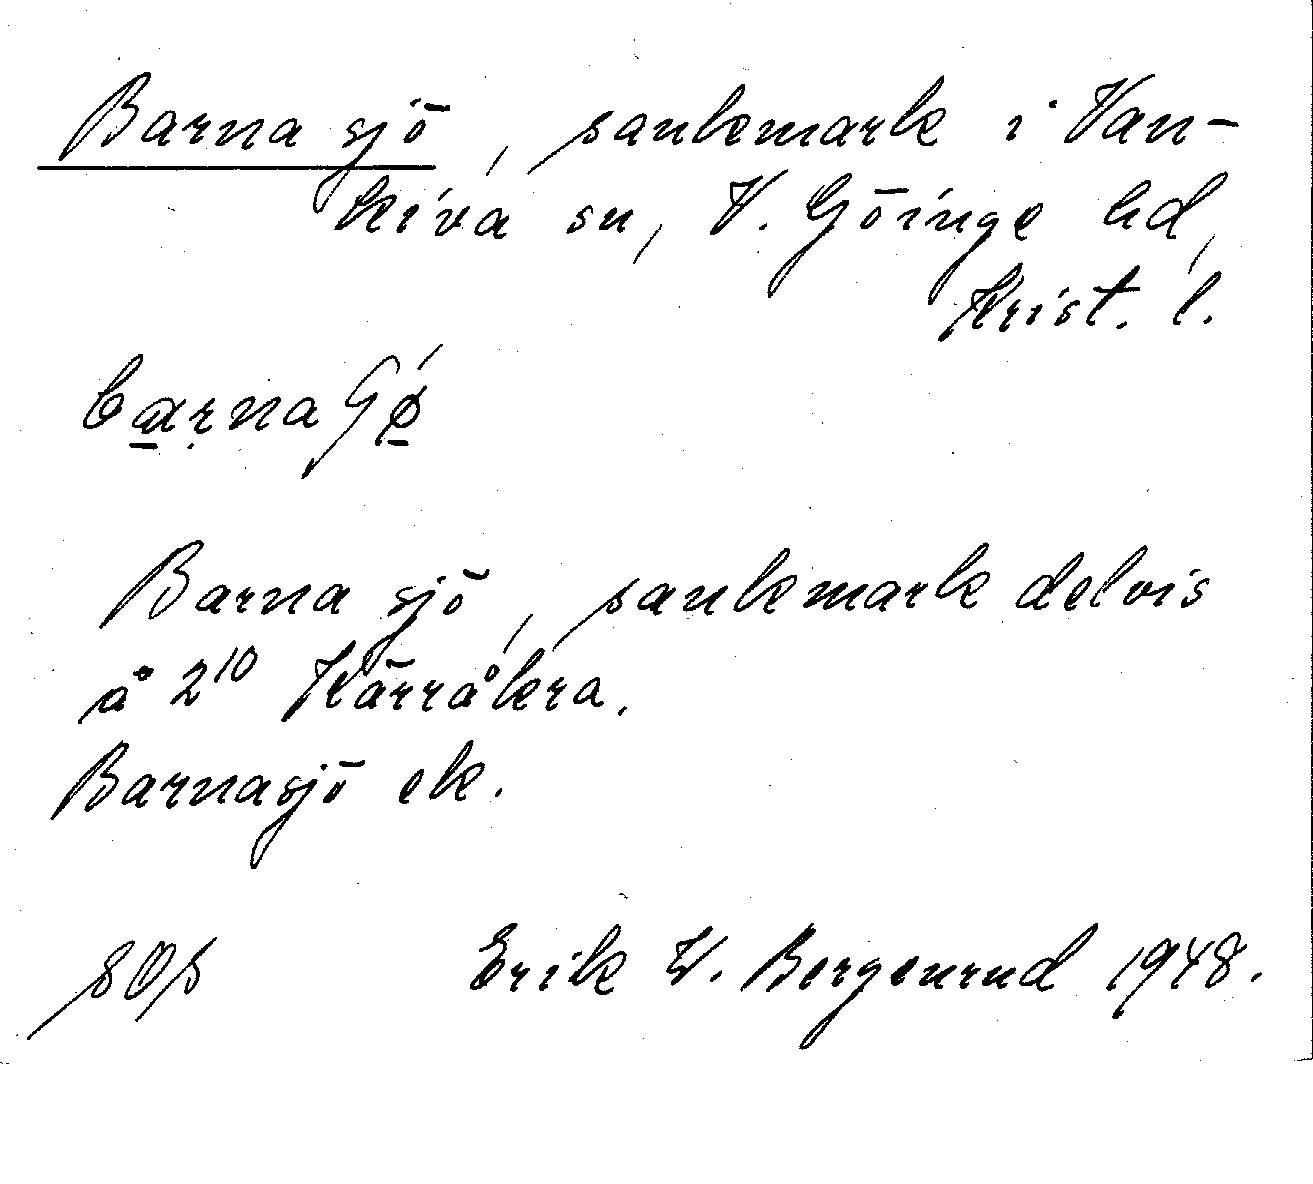 Barna sjö, sankmark i Van-
kiva sn, V. Göinge hd,
Krist. l.
Barna sjö, sankmark delvis
å 2¹⁰ Kärråkra.
Barnasjö ek.
Erik W. Bergenrud 1948.